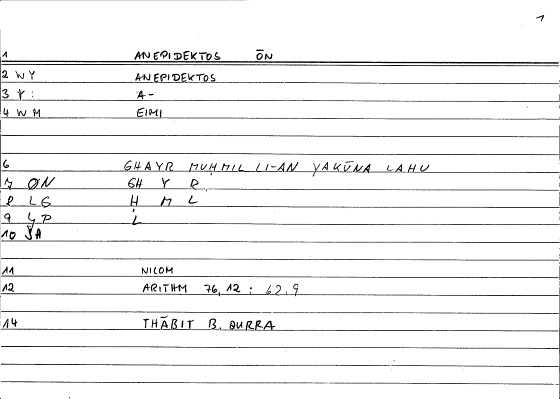 1
1 ANEPIDEKTOS ŌN
2 WY ANEPIDEKTOS
3 Y: A-
4 WM EIMI
6 GHAYR MUḤMIL LI-AN YAKŪNA LAHU
7 ØN GH Y R
8 LG Ḥ M L
9 LP L
10 JA
11 NICOM
12 ARITHM 76,12 : 62,9
14 THĀBIT B. QURRA